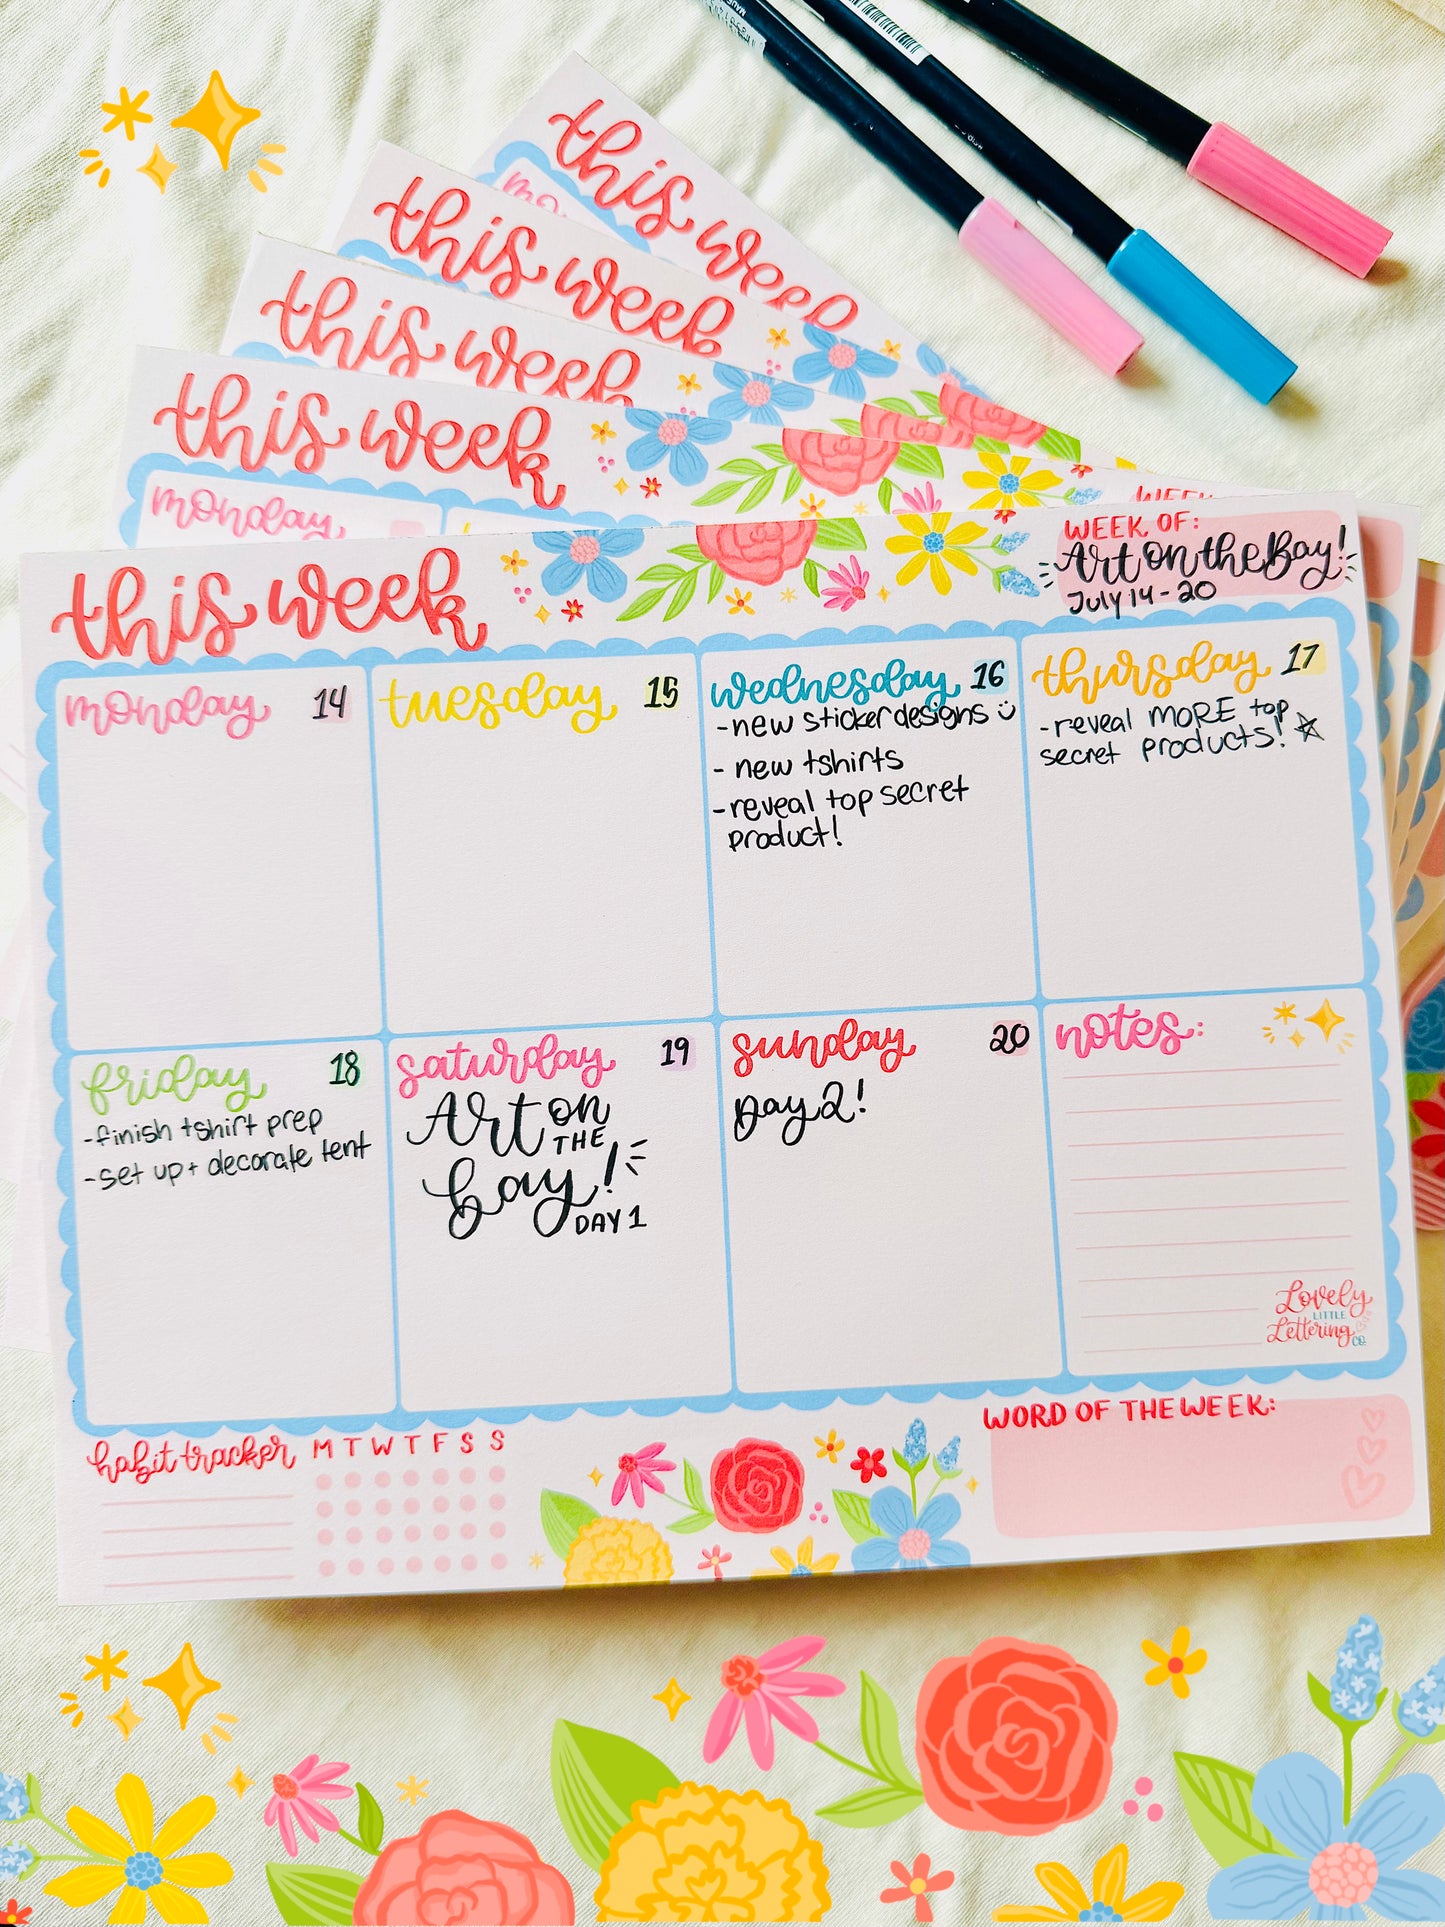 this week
this week
this week
this week
monday
WEEK
this week
WEEK OF:
Art on the Bay!
July 14-20
monday 14
tuesday 15
wednesday 16
-new sticker designs
- new tshirts
-reveal top secret
product!
thursday 17
-reveal MORE top
secret products!
friday 18
-finish tshirt prep
-set up + decorate tent
saturday 19
Art on
THE
Bay!
DAY 1
sunday 20
Day 2!
notes:
Lovely
LITTLE
Lettering
CO.
habit tracker M T W T F S S
WORD OF THE WEEK: